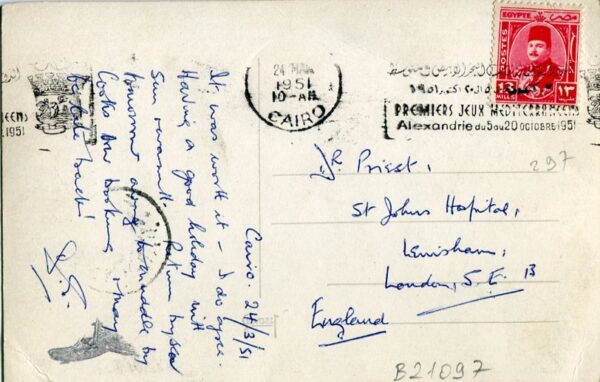 Cairo. 24/3/51
It was worth it – I do agree.
Having a good holiday with
Sun & warmth. Return by sea
tomorrow owing to muddle by
Cooks over booking & may
be late back!
24 MAR
1951
10-AM
CAIRO
EGYPTE مصر
POSTES
MILLS ١٣
PREMIERS JEUX MEDITERRANEENS
Alexandrie du 5 au 20 OCTOBRE 1951
NEENS
1951
Dr. Priest,
St Johns Hospital,
Lewisham,
London, S.E. 13
England
297
B21097